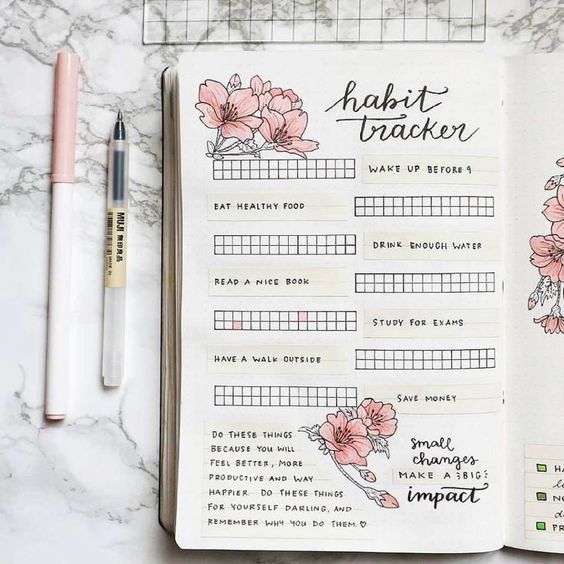 habit
tracker
WAKE UP BEFORE 9
EAT HEALTHY FOOD
DRINK ENOUGH WATER
READ A NICE BOOK
STUDY FOR EXAMS
HAVE A WALK OUTSIDE
SAVE MONEY
DO THESE THINGS
BECAUSE YOU WILL
FEEL BETTER, MORE
PRODUCTIVE AND WAY
HAPPIER DO THESE THINGS
FOR YOURSELF DARLING, AND
REMEMBER WHY YOU DO THEM. ♡
small
changes
MAKE A BIG
impact
MUJI 無印良品